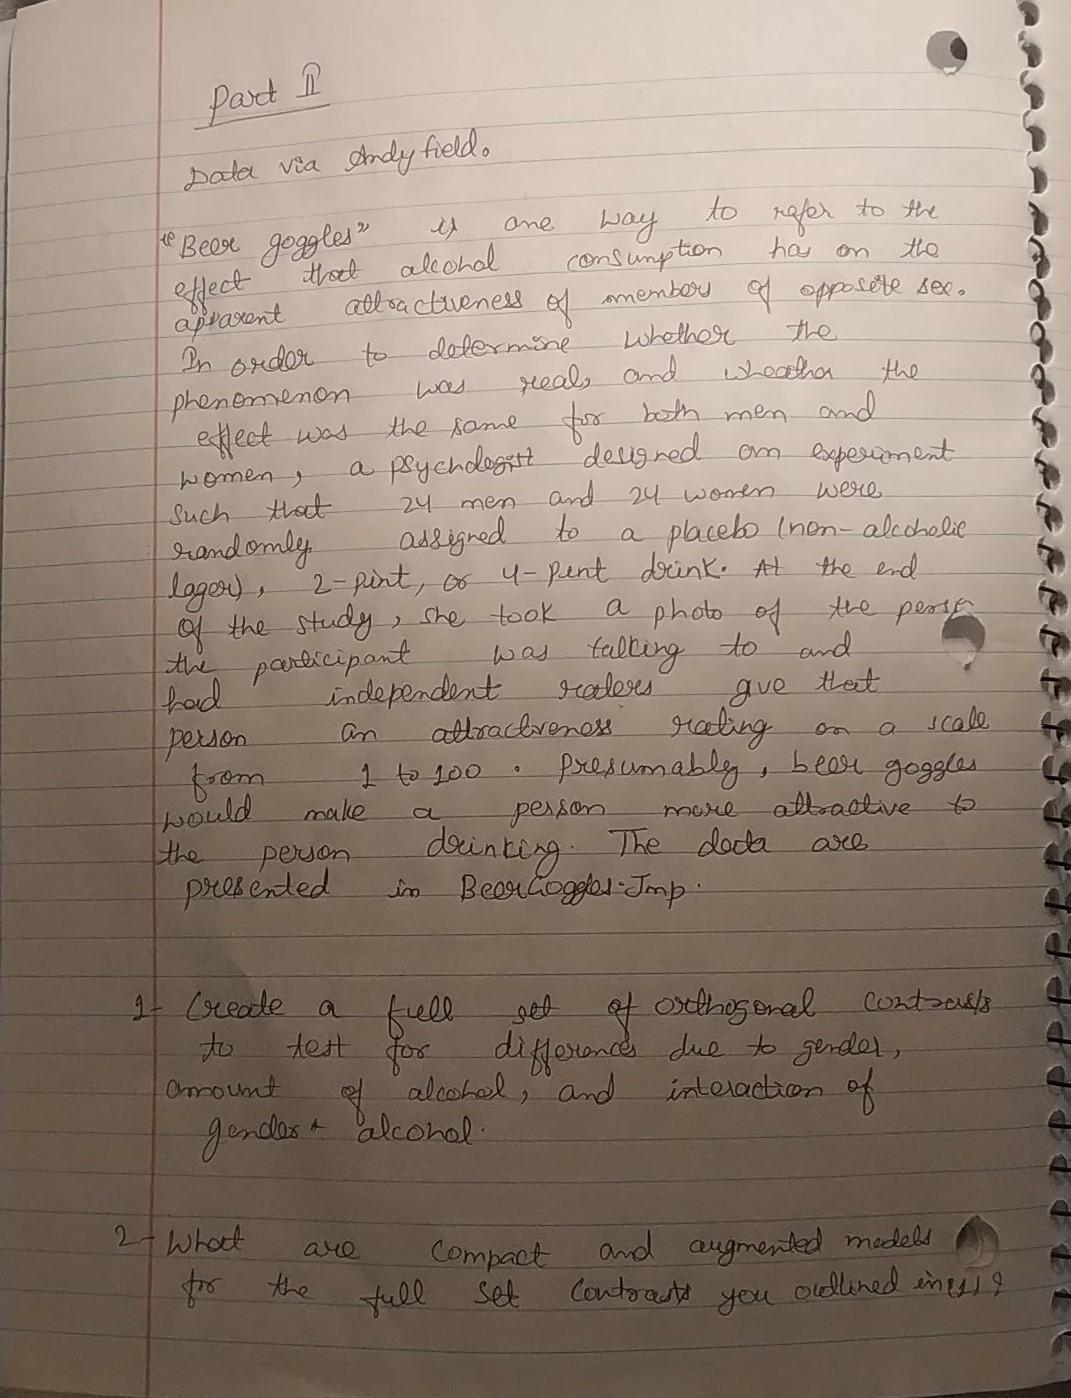 Part II
Data via Andy field.
"Beer goggles" is one way to refer to the
effect that alcohol consumption has on the
apparent attractiveness of members of opposite sex.
In order to determine whether the
phenomenon was real, and wheather the
effect was the same for both men and
women, a psychologist designed an experiment
such that 24 men and 24 women were
randomly assigned to a placebo (non-alcoholic
lager), 2-pint, or 4-pint drink. At the end
of the study, she took a photo of the
the participant was talking to and
had independent raters give that
person an attractiveness rating on a scale
from 1 to 100. Presumably, beer goggles
would make a person more attractive to
the person drinking. The data are
presented in BeerGoggles.Jmp.
1- Create a full set of orthogonal contrasts
to test for differences due to gender,
amount of alcohol, and interaction of
gender * alcohol.
2- What are compact and augmented models
for the full set contrasts you outlined in